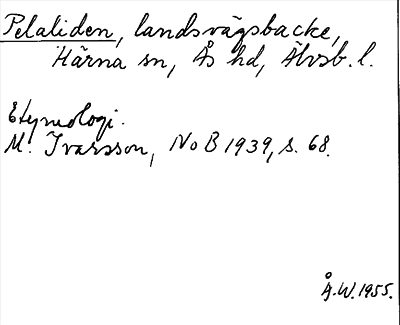 Pelaliden, landsvägsbacke,
Härna sn, Ås hd, Älvsb. l.
Etymologi.
M. Ivarsson, NoB 1939, s. 68.
Å.W. 1955.